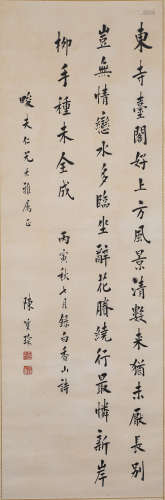 東寺臺閣好上方風景清數來猶未厭長別
豈無情戀水多臨坐辭花勝繞行最憐新岸
柳手種未全成 丙寅秋七月錄白香山詩
畯夫仁兄大雅屬正
陳寶琛